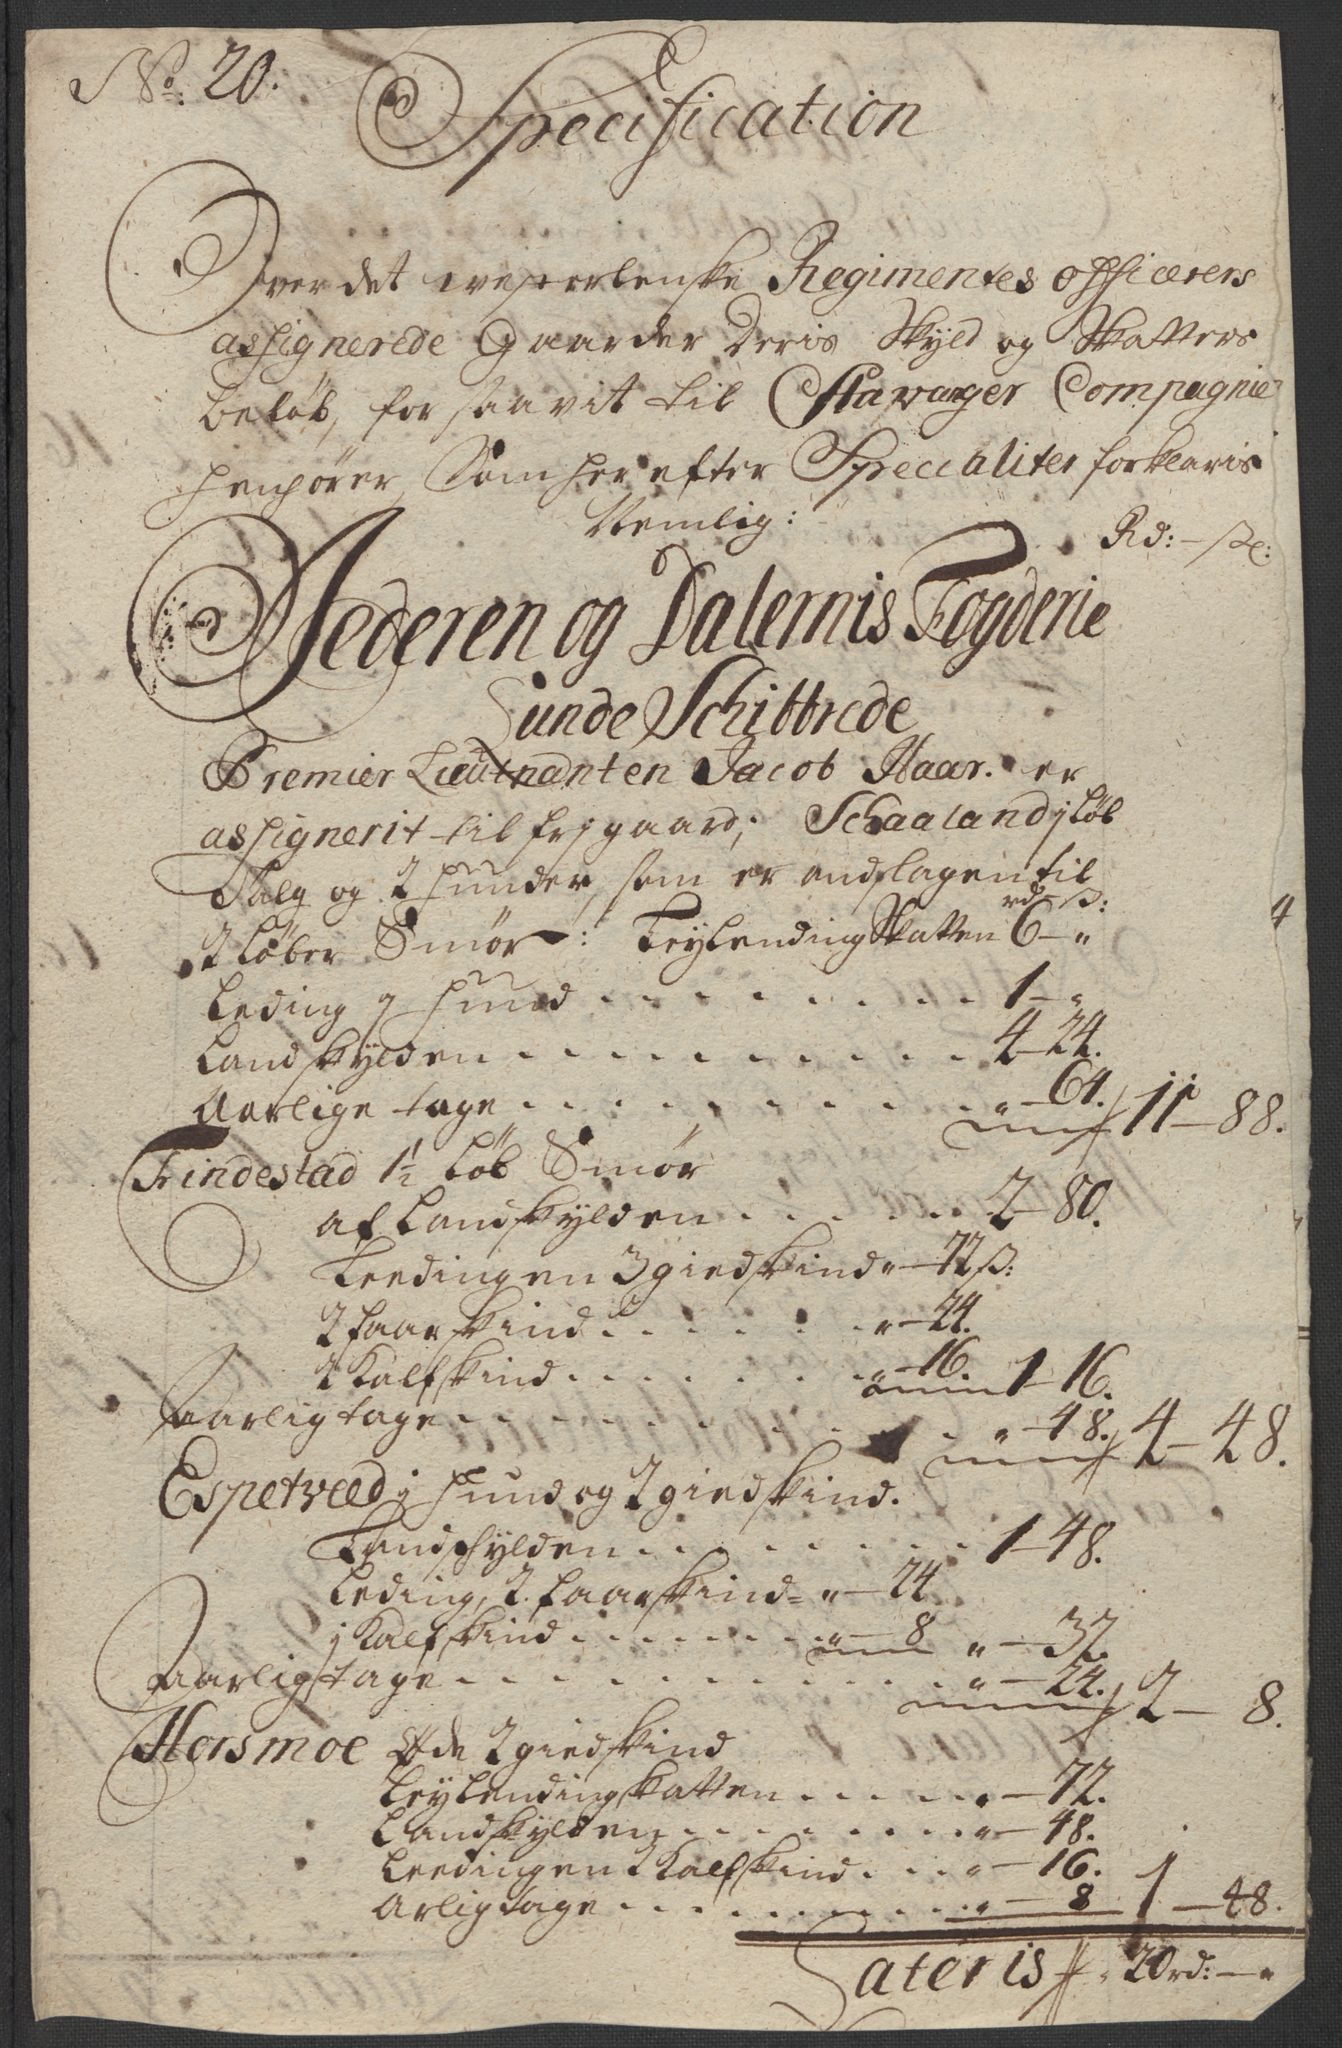 No. 20.
Specification
Over det westerlenske Regimentes officerers
assignerede Gaarder Deris Skyld og Skatters
beløb, for saavit til Stavanger Compagnie
henhører, Som her efter Specialiter forklaris
Nemlig:
Rd: – ß:
Jederen og Dalernis Fogderie
Lunde Schibbrede
Premier Lieutnanten Jacob Haar. er
assignerit til frj gaard; Schaaland j løb
Talg og 2 hunder, som er andslagen til
rd ß:
2 Løber Smør: Leylending Skatten 6 – "
Leding j hund . . . 1 – "
Landskylden . . . 4 – 24.
Aarlige tage . . . " – 64. 11 – 88.
Findestad 1½ Løb Smør
af Landskylden . . . 2 – 80.
Leedingen 3 giedskind " – 72 ß:
2 faarskind . . . " – 24.
2 Kalfskind . . . " – 16. 1 – 16.
Aarlig tage . . . " – 48. 4 – 48.
Espetveed j hund og 2 giedskind.
Landschylden . . . 1 – 48.
Leding, 2 faarskind = " – 24
j Kalfskind . . . " – 8 " – 32.
Aarlig tage . . . " – 24. 2 – 8.
Horsmoe Øde 2 giedskind
Leylending skatten . . . " – 72.
Landskylden . . . " – 48.
Leedingen 2 Kalfskind . . . " – 16.
Arlig tage . . . " – 8 1 – 48.
Lateris 20 rd: – "